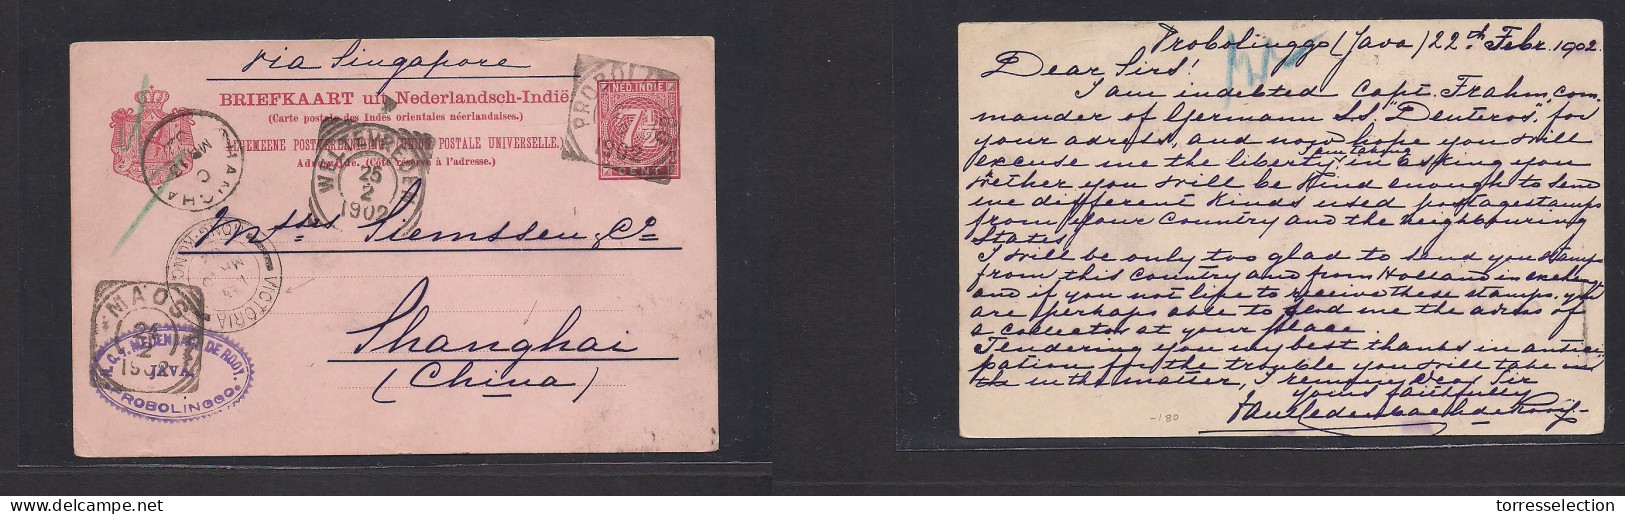 via Singapore
BRIEFKAART uit Nederlandsch-Indië
(Carte postale des Indes orientales néerlandaises.)
ALGEMEENE POSTVEREENIGING (UNION POSTALE UNIVERSELLE.)
Adreszijde. (Côté réservé à l'adresse.)
NED. INDIE
7½
CENT
PROBOLI
1902
WELTEVREDEN
25
2
1902
SHANGHA
VICTORIA
HONG-KONG
MAOS
24
2
1902
DE ROOY.
JAVA
PROBOLINGGO
Messrs Siemssen & Co
Shanghai
(China)
Probolinggo (Java) 22th Febr. 1902
Dear Sirs!
I am indebted Capt. Frahm, com-
mander of Germann S.S. "Deuteros", for
your adress, and now hope you will
excuse me the liberty, in asking you
wether you will be kind enough to send
me different kinds used postagestamps
from your Country and the neighbouring
States
I will be only too glad to send you stamps
from this Country and from Holland in exchange
and if you not life to receive these stamps, you
are perhaps able to send me the adres of
a collector at your place.
Tendering you my best thanks in antici-
pation for the trouble you will take
in the matter, I remain, Dear Sir
Yours faithfully
-180
torresselection